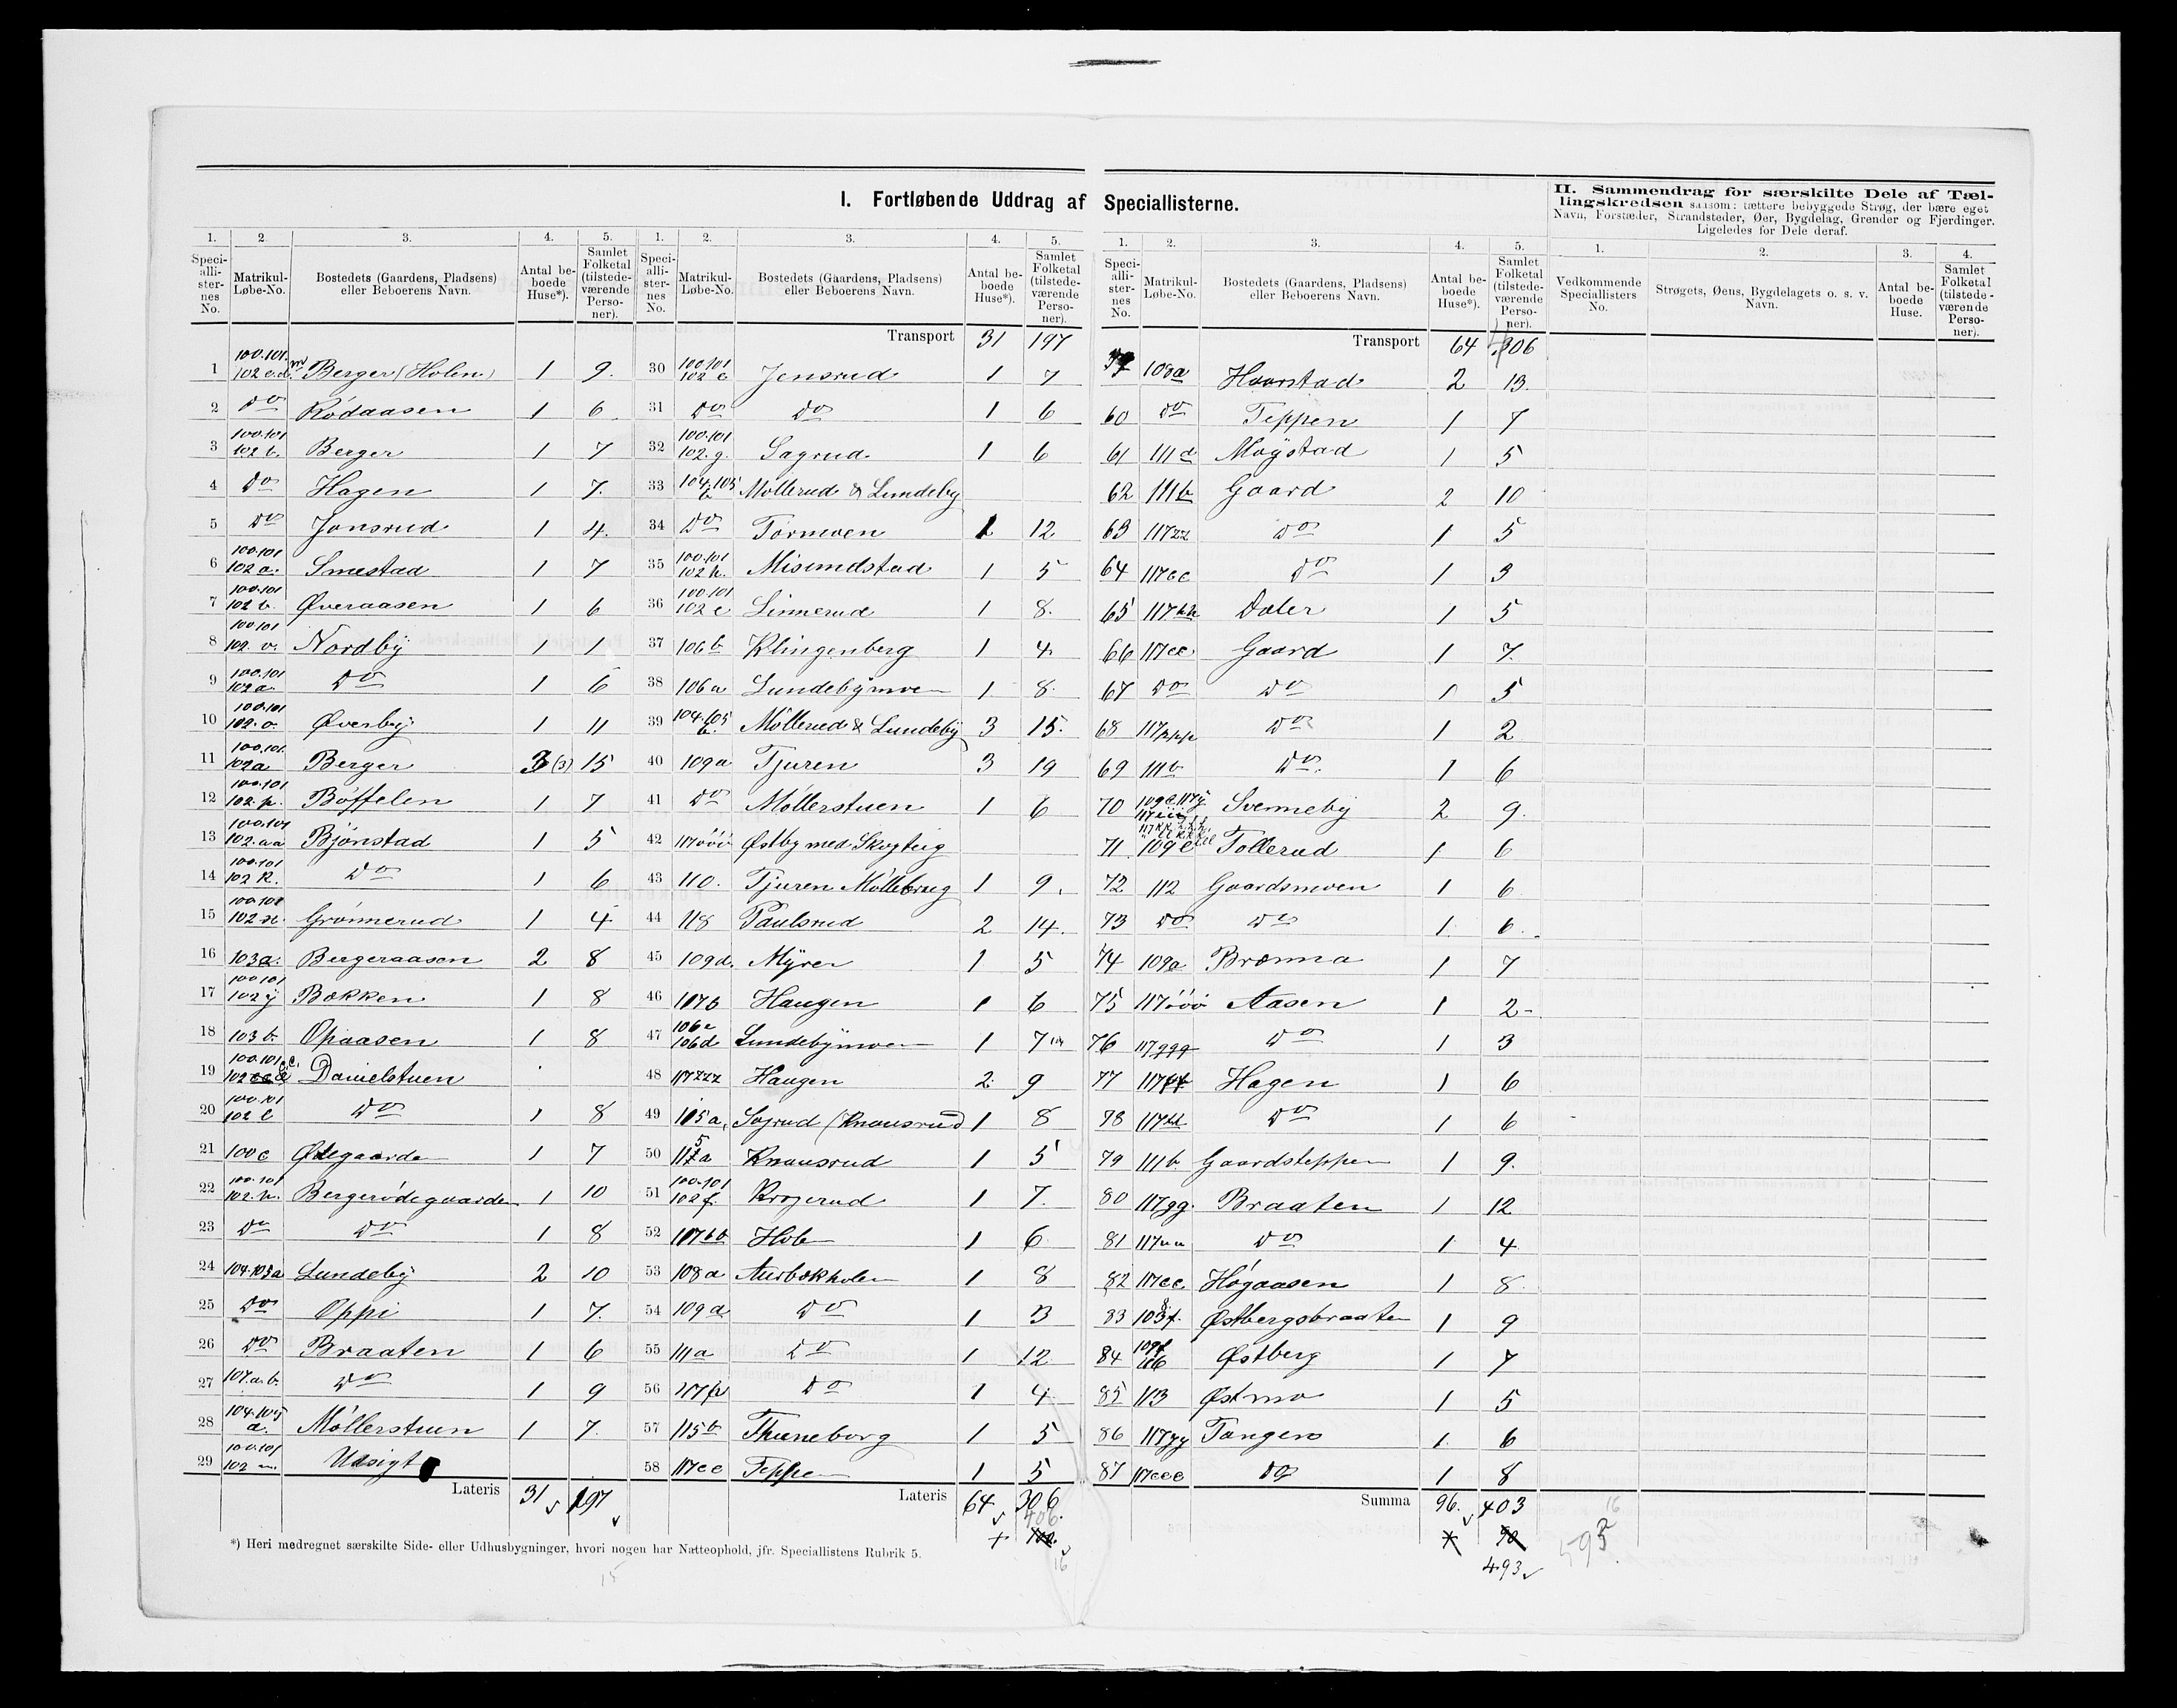 I. Fortløbende Uddrag af Speciallisterne.
II. Sammendrag for særskilte Dele af Tæl-
lingskredsen saasom: tættere bebyggede Strøg, der bære eget
Navn, Forstæder, Strandsteder, Øer, Bygdelag, Grender og Fjerdinger.
Ligeledes for Dele deraf.
1. 2. 3. 4. 5.
Speci-alli-ster-nes No. Matrikul-Løbe-No. Bostedets (Gaardens, Pladsens) eller Beboerens Navn. Antal be-boede Huse*). Samlet Folketal (tilstede-værende Perso-ner).
1 100.101. 102 c.d. Berger (Holen) 1 9.
2 Do Rödaasen 1 6
3 100.101 102 b. Berger 1 7
4 Do Hagen 1 7.
5 Do Jonsrud 1 4.
6 100.101 102 a. Smestad 1 7
7 100.101 102 b. Øveraasen 1 6
8 100.101 102. v. Nordbÿ 1 1
9 100.101 102 a. Do 1 6
10 100.101 102. o. Øverbÿ 1 11
11 100.101. 102a Berger 3 (3) 15
12 100.101 102. p. Böffelen 1 7
13 100.101 102. aa Bjönstad 1 5
14 100.101 102 k. Do 1 6
15 102 n. Grönnerud 1 4
16 103a. Bergeraasen 2 8
17 100 101 102 ÿ Bakken 1 8
18 103 b. Opaasen 1 8
19 100.101 Danielstuen
20 100.101 102 l Do 1 8
21 100 c Ødegaarde 1 7
22 100.101 102. h. Bergerödegaarden 1 10
23 Do Do 1 8
24 104.105a Lundebÿ 2 10
25 Do Oppi 1 7.
26 Do Braaten 1 6
27 107.a.b. Do 1 9
28 104.105 a. Möllerstuen 1 7.
29 100.101 102 m. Udsigt
Lateris 31 197
1. 2. 3. 4. 5.
Speci-alli-ster-nes No. Matrikul-Løbe-No. Bostedets (Gaardens, Pladsens) eller Beboerens Navn. Antal be-boede Huse*). Samlet Folketal (tilstede-værende Perso-ner).
Transport 31 197
30 100.101 102 e Jensrud 1 7
31 Do Do 1 6
32 100.101 102. g. Sagrud 1 6
33 104.105 b Möllerud & Lundeby
34 Do Tormoen 1 12
35 100.101 102 h. Misundstad 1 5
36 100.101 102 e Linnerud 1 8.
37 106 b Klingenberg 1 4.
38 106 a Lundebÿmoe 1 8.
39 104.105 b. Möllerud & Lundebÿ 3 15.
40 109a Tjuren 3 19
41 Do Möllerstuen 1 6
42 117ööö Østby med Skogteig
43 110. Tjuren Möllebrug 1 9.
44 118 Paulsrud 2 14.
45 109d. Mÿrer 1 5
46 117b Haugen 1 6
47 106 c 106d Lundebÿmoe 1 7
48 117zzz Haugen 2 9
49 105 a, Sogrud (Knausrud) 1 8
50 Knausrud 1 5
51 100.101 102 f. Krogerud 1 7.
52 117bb Hob 1 6
53 108 a Aurbækholen 1 8
54 109 a Do 1 3
55 111 a Do 1 12
56 Do 1 4
57 115 b Thuneborg 1 5
58 117 ee Teppe 1 5
Lateris 64 306.
406.
16
1. 2. 3. 4. 5.
Speci-alli-ster-nes No. Matrikul-Løbe-No. Bostedets (Gaardens, Pladsens) eller Beboerens Navn. Antal be-boede Huse*). Samlet Folketal (tilstede-værende Perso-ner).
Transport 64 306
108a Haarstad 2 13.
60 Do Teppen 1 7
61 111 d Moÿstad 1 5
62 111 b Gaard 2 10
63 117zz Do 1 5
64 117cc Do 1 3
65 117hh Daler 1 5
66 117ee Gaard 1 7.
67 Do Do 1 5
68 117ppp Do 1 2
69 111 b Do. 1 6
70 Svennebÿ 2 9.
71 109 e Tollerud 1 6
72 112 Gaardsmoen 1 6
73 Do Do 1 6
74 109a Brænna 1 7
75 117ööö Aasen 1 2
76 117qqq Do 1 3
77 Hagen 1 6
78 Do 1 6
79 111 b Gaardsteppe 1 9.
80 117gg. Braaten 1 12
81 117uu Do 1 4
82 117ee. Högaasen 1 8
83 Østbergsbraate 1 9
84 109f Østberg 1 7
85 113 Østmo 1 5
86 117yy Tangen 1. 6
87 117eee Do 1 8
Summa 96. 403
493
595
16
1. 2. 3. 4.
Vedkommende Speciallisters No. Strøgets, Øens, Bygdelagets o. s. v. Navn. Antal be-boede Huse. Samlet Folketal (tilstede-værende Perso-ner).
*) Heri medregnet særskilte Side- eller Udhusbygninger, hvori nogen har Natteophold, jfr. Speciallistens Rubrik 5.
15